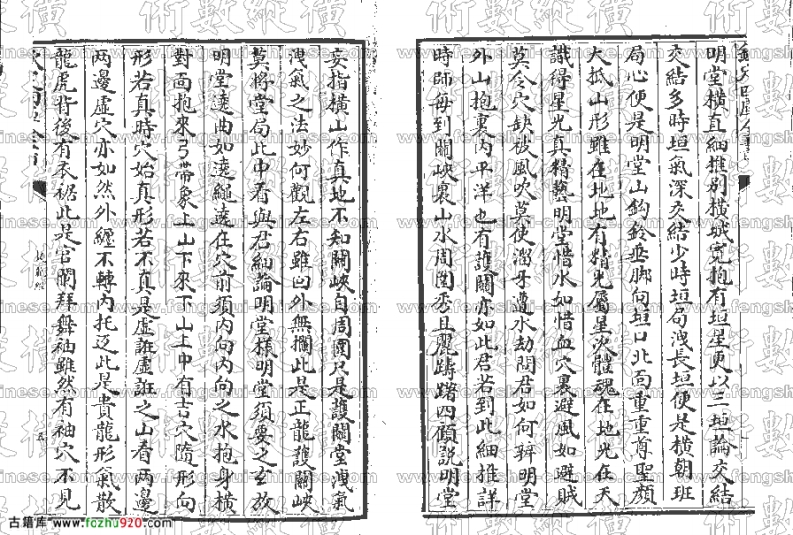 明堂橫直細推別橫城寬抱有垣星更以三垣論交結
交結多時垣氣深交結少時垣局洩長垣便是橫朝班
局心便是明堂山鈎鈐垂脚向垣口北面重重尊聖顏
大抵山形雖在地地有精光屬星次體魂在地光在天
識得星光真精藝明堂惜水如惜血穴裏避風如避賊
莫令穴缺被風吹莫使溜牙遭水劫問君如何辨明堂
外山抱裏内平洋也有護關亦如此君若到此細推詳
時師每到關峽裏山水周圍秀且麗躊躇四顧說明堂
妄指橫山作真地不知關峽自周圍只是護關堂洩氣
洩氣之法妙何觀左右雖囘外無攔此是正龍護關峽
莫將堂局此中看與君細論明堂樣明堂須要之玄放
明堂遶曲如遶繩遶在穴前須内向内向之水抱身橫
對面抱來弓帶象上山下來下山上中有吉穴隨形向
形若真時穴始真形若不真是虛誑虛誑之山看兩邊
兩邊虛穴亦如然外纒不轉内托返此是貴龍形氣散
龍虎背後有衣裾此是官闌拜舞袖雖然有袖穴不見
撼龍經
古籍库 www.fozhu920.com
術數縱橫
www.fengshui-chinese.com